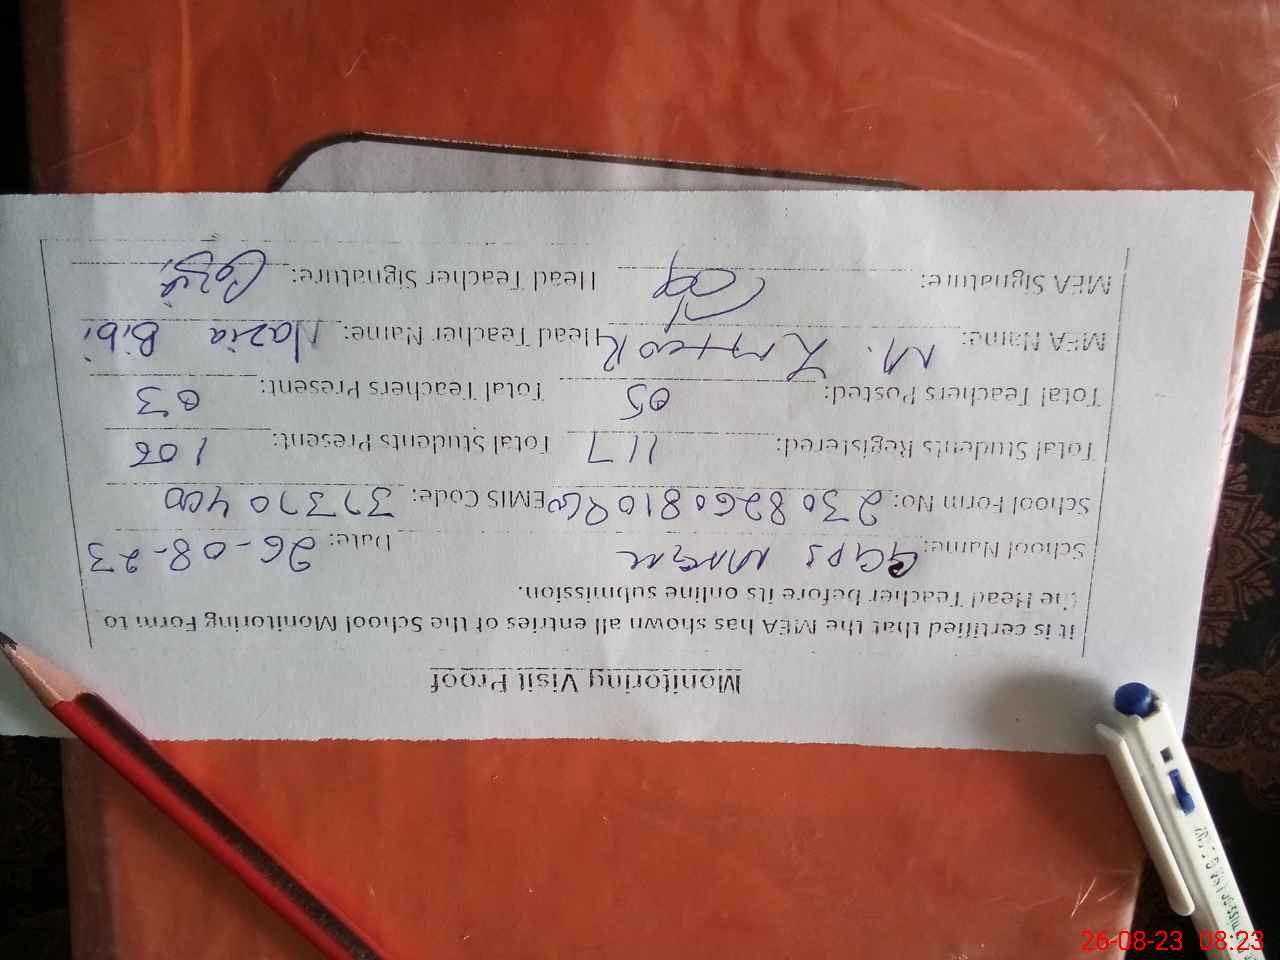 Monitoring Visit Proof
it is certified that the MEA has shown all entries of the School Monitoring Form to
the Head Teacher before its online submission.
School Name: GGPS Date: 26-08-23
School Form No: EMIS Code: 37370400
Total Students Registered: 117 Total Students Present: 106
Total Teachers Posted: 05 Total Teachers Present: 03
MEA Name: M. Head Teacher Name: Nazia Bibi
MEA Signature: Head Teacher Signature:
26-08-23 08:23